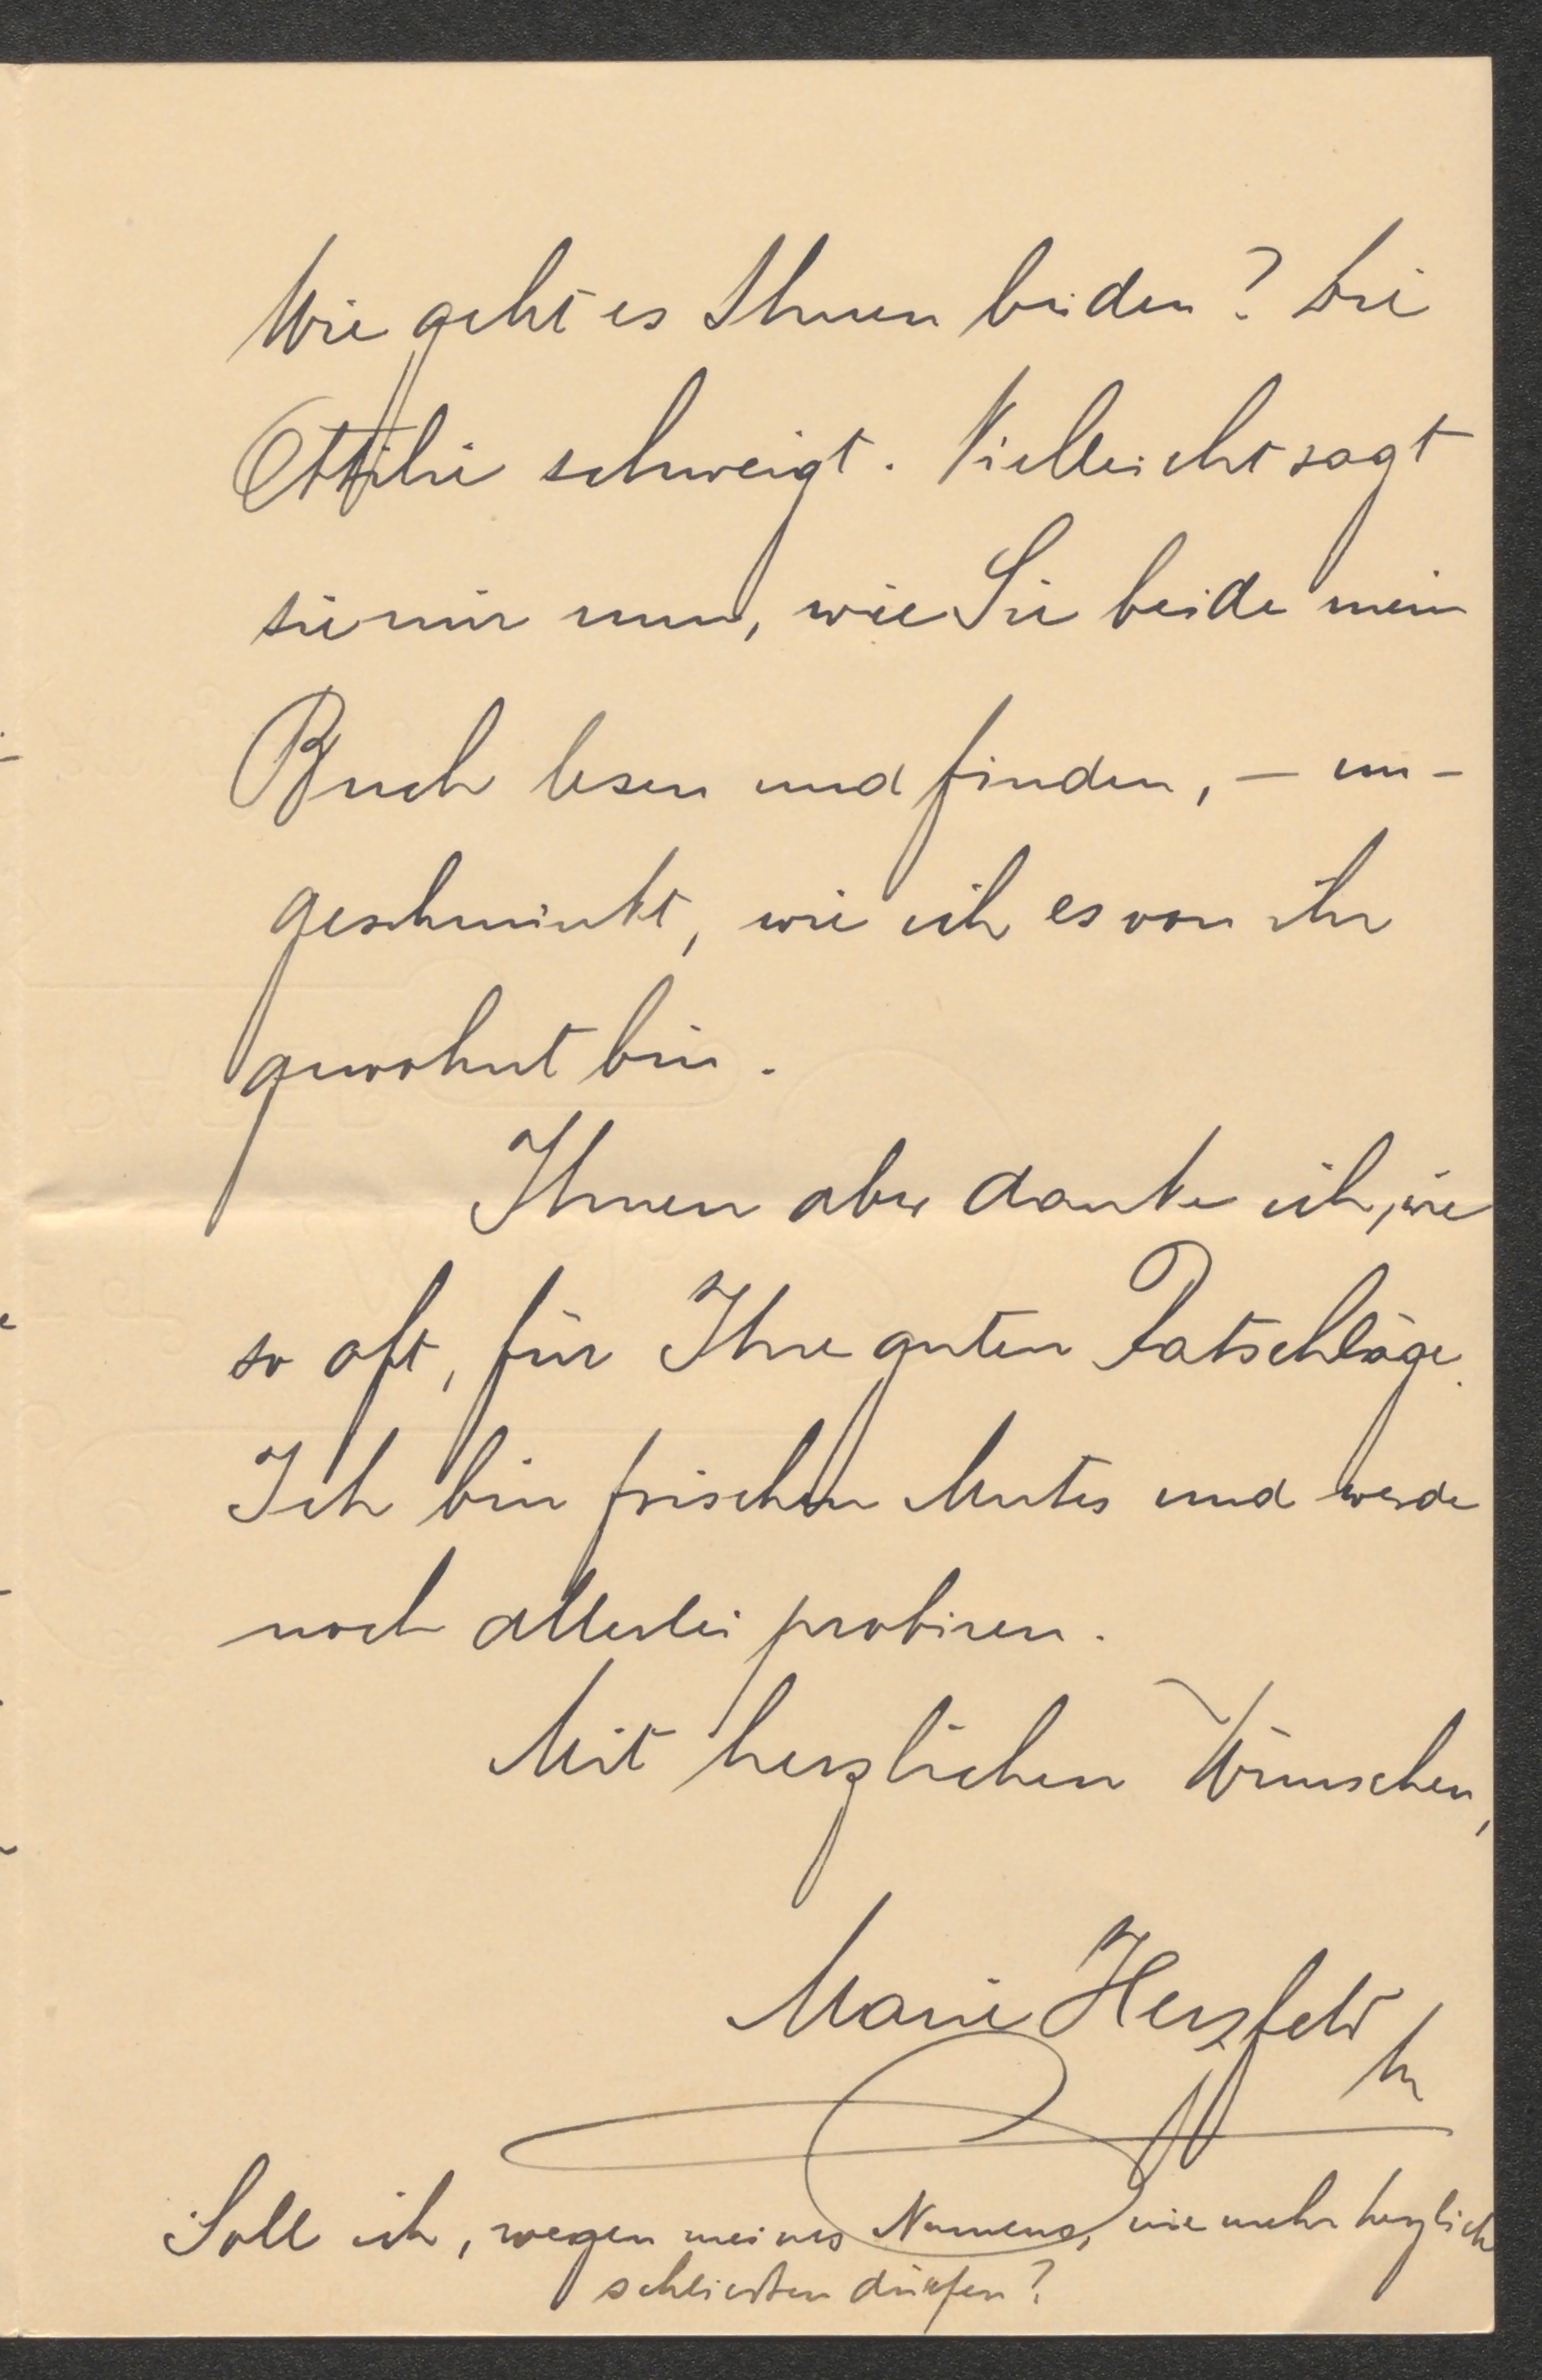 Wie geht es Ihnen beiden? Die
Ottilie schweigt. Vielleicht sagt
sie mir nun, wie Sie beide mein
Buch lesen und finden, – un-
geschminkt, wie ich es von ihr
gewohnt bin.
Ihnen aber danke ich, wie
so oft, für Ihre guten Ratschläge.
Ich bin frischen Mutes und werde
noch allerlei probiren.
Mit herzlichen Wünschen,
Marie Herzfeld
Soll ich, wegen meines Namens, nie mehr herzlich
schließen dürfen?